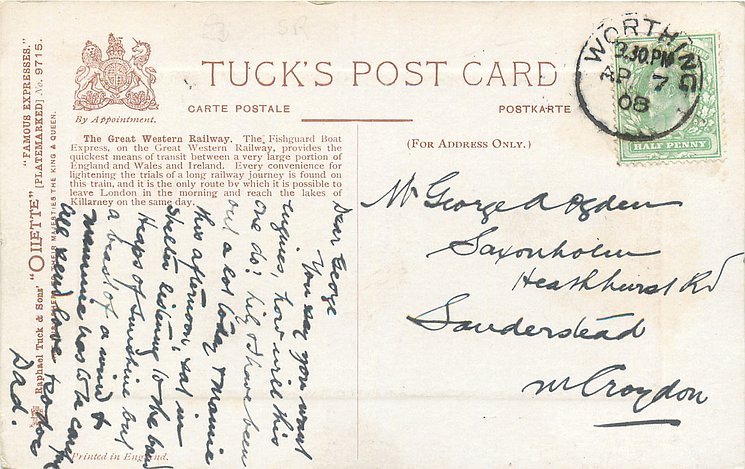 TUCK'S POST CARD
By Appointment.
CARTE POSTALE
POSTKARTE
"FAMOUS EXPRESSES."
[PLATEMARKED] No. 9715.
Raphael Tuck & Sons' "OILETTE"
TO THEIR MAJESTIES THE KING & QUEEN.
The Great Western Railway. The Fishguard Boat
Express, on the Great Western Railway, provides the
quickest means of transit between a very large portion of
England and Wales and Ireland. Every convenience for
lightening the trials of a long railway journey is found on
this train, and it is the only route by which it is possible to
leave London in the morning and reach the lakes of
Killarney on the same day.
(FOR ADDRESS ONLY.)
WORTHING
2.30 PM
AP 7
08
HALF PENNY
Dear George
You say you want
engines, how will this
one do? Lily & have been
out a lot today & Mamie
this afternoon, sat in
shelter listening to the band
Heaps of sunshine but
a beast of a wind &
Mamie was to be
All send love
Dad.
Mr George A Ogden
Saxonholm
Heathhurst Rd
Sanderstead
nr Croydon
Printed in England.